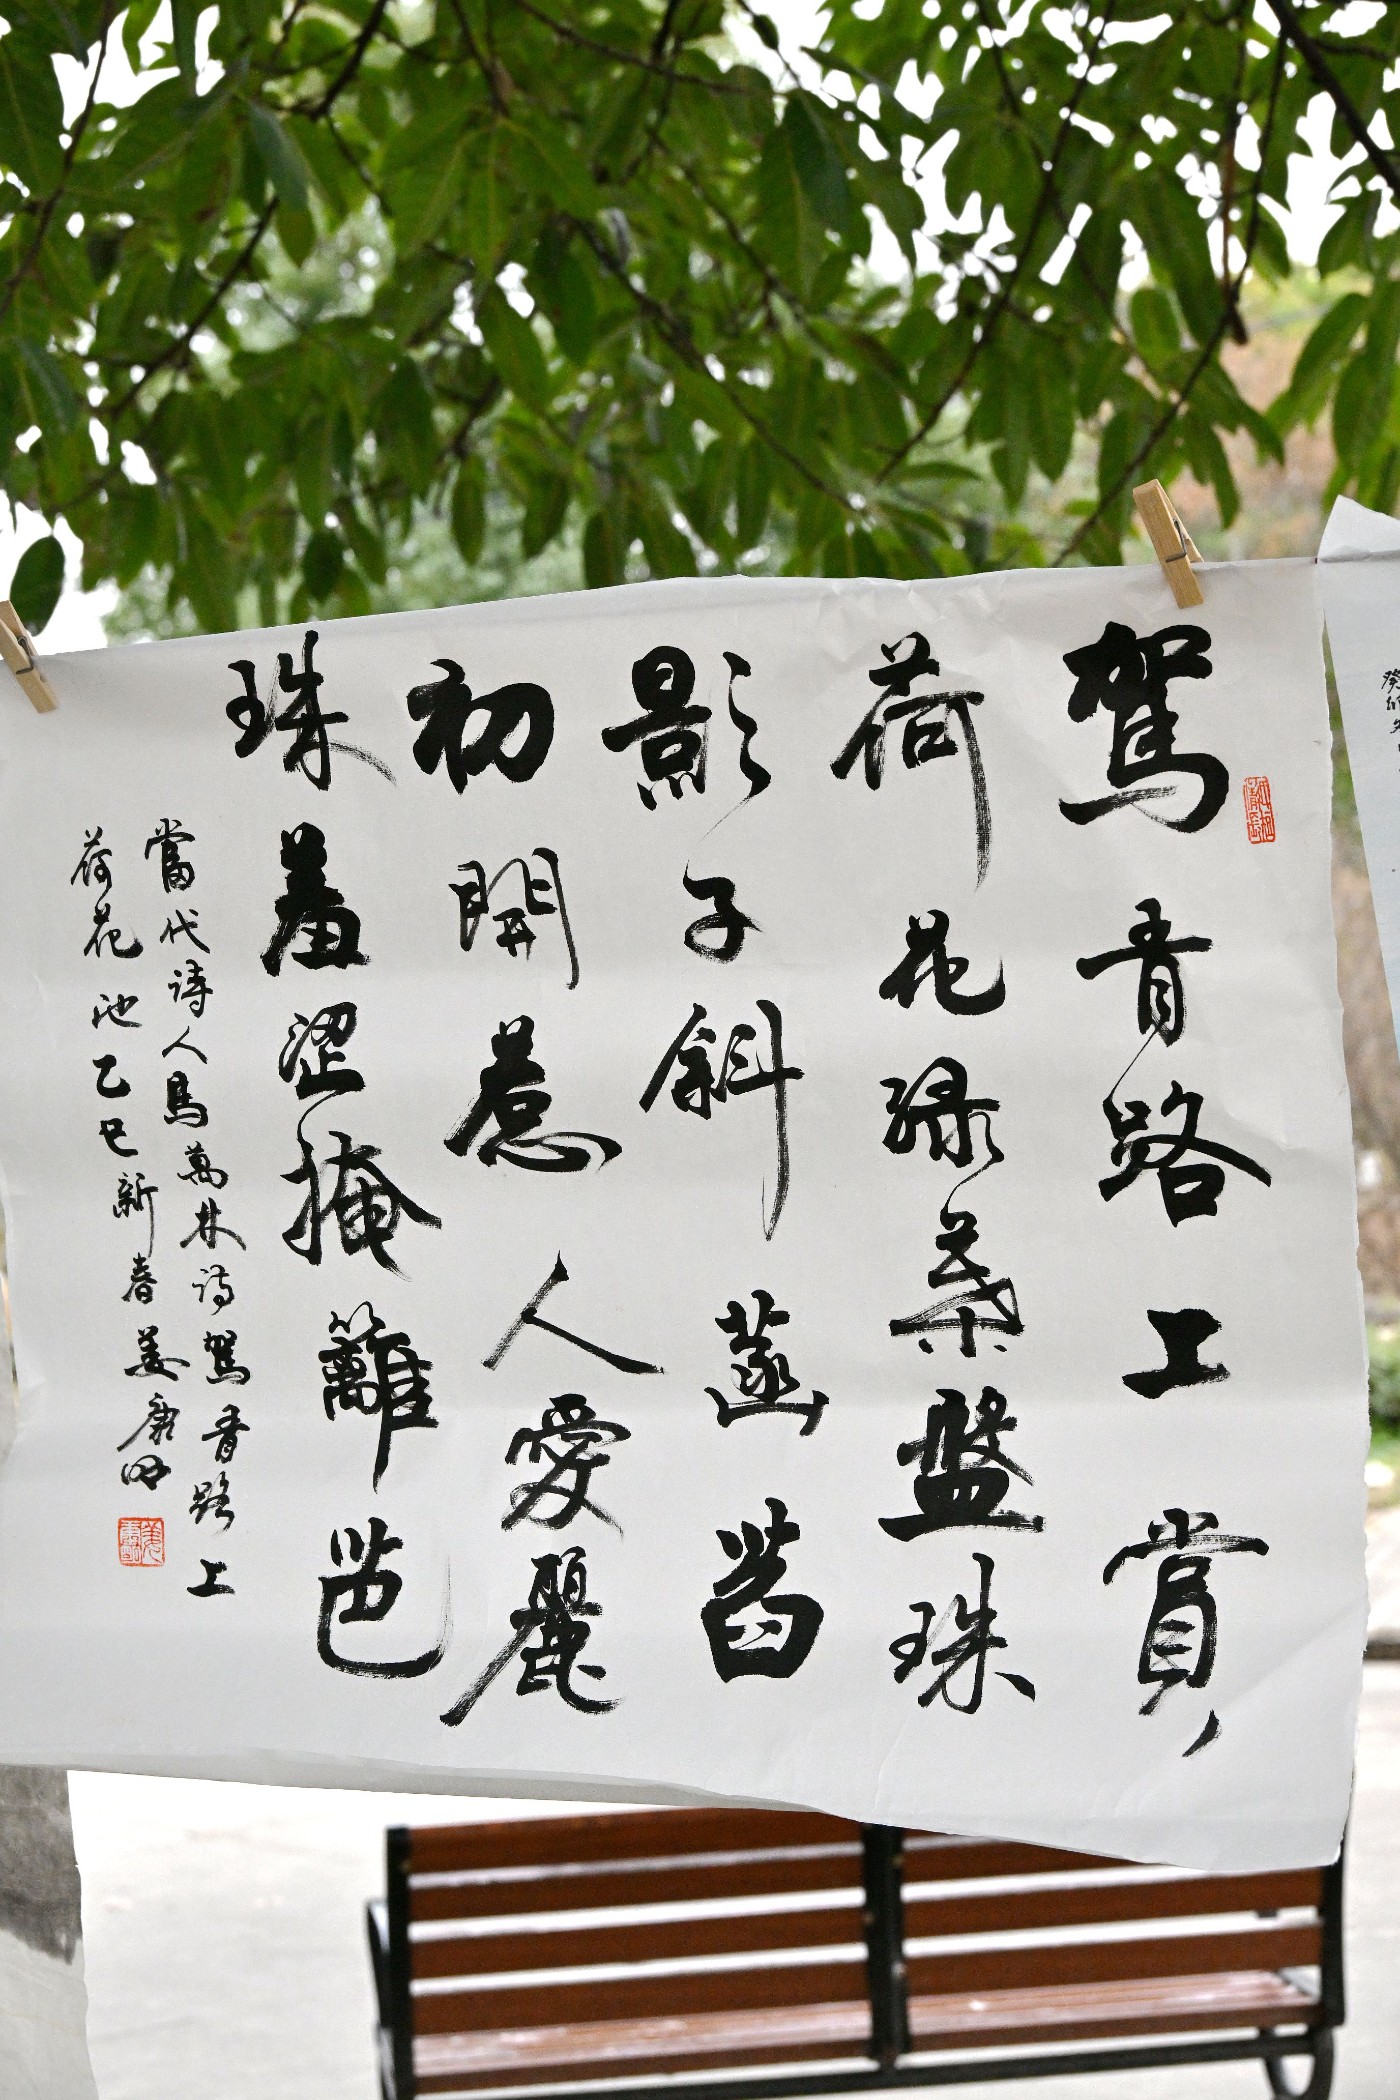 駕青路工賞
荷花绿葉盤珠
影子斜菡萏
初開惹人愛麗
珠羞涩掩籬笆
當代诗人馬萬林诗駕青路上
荷花池乙巳新春姜康明